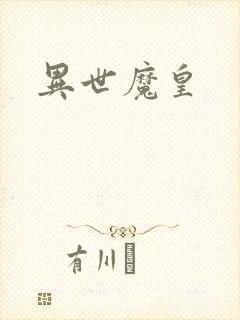 異世魔皇
有川